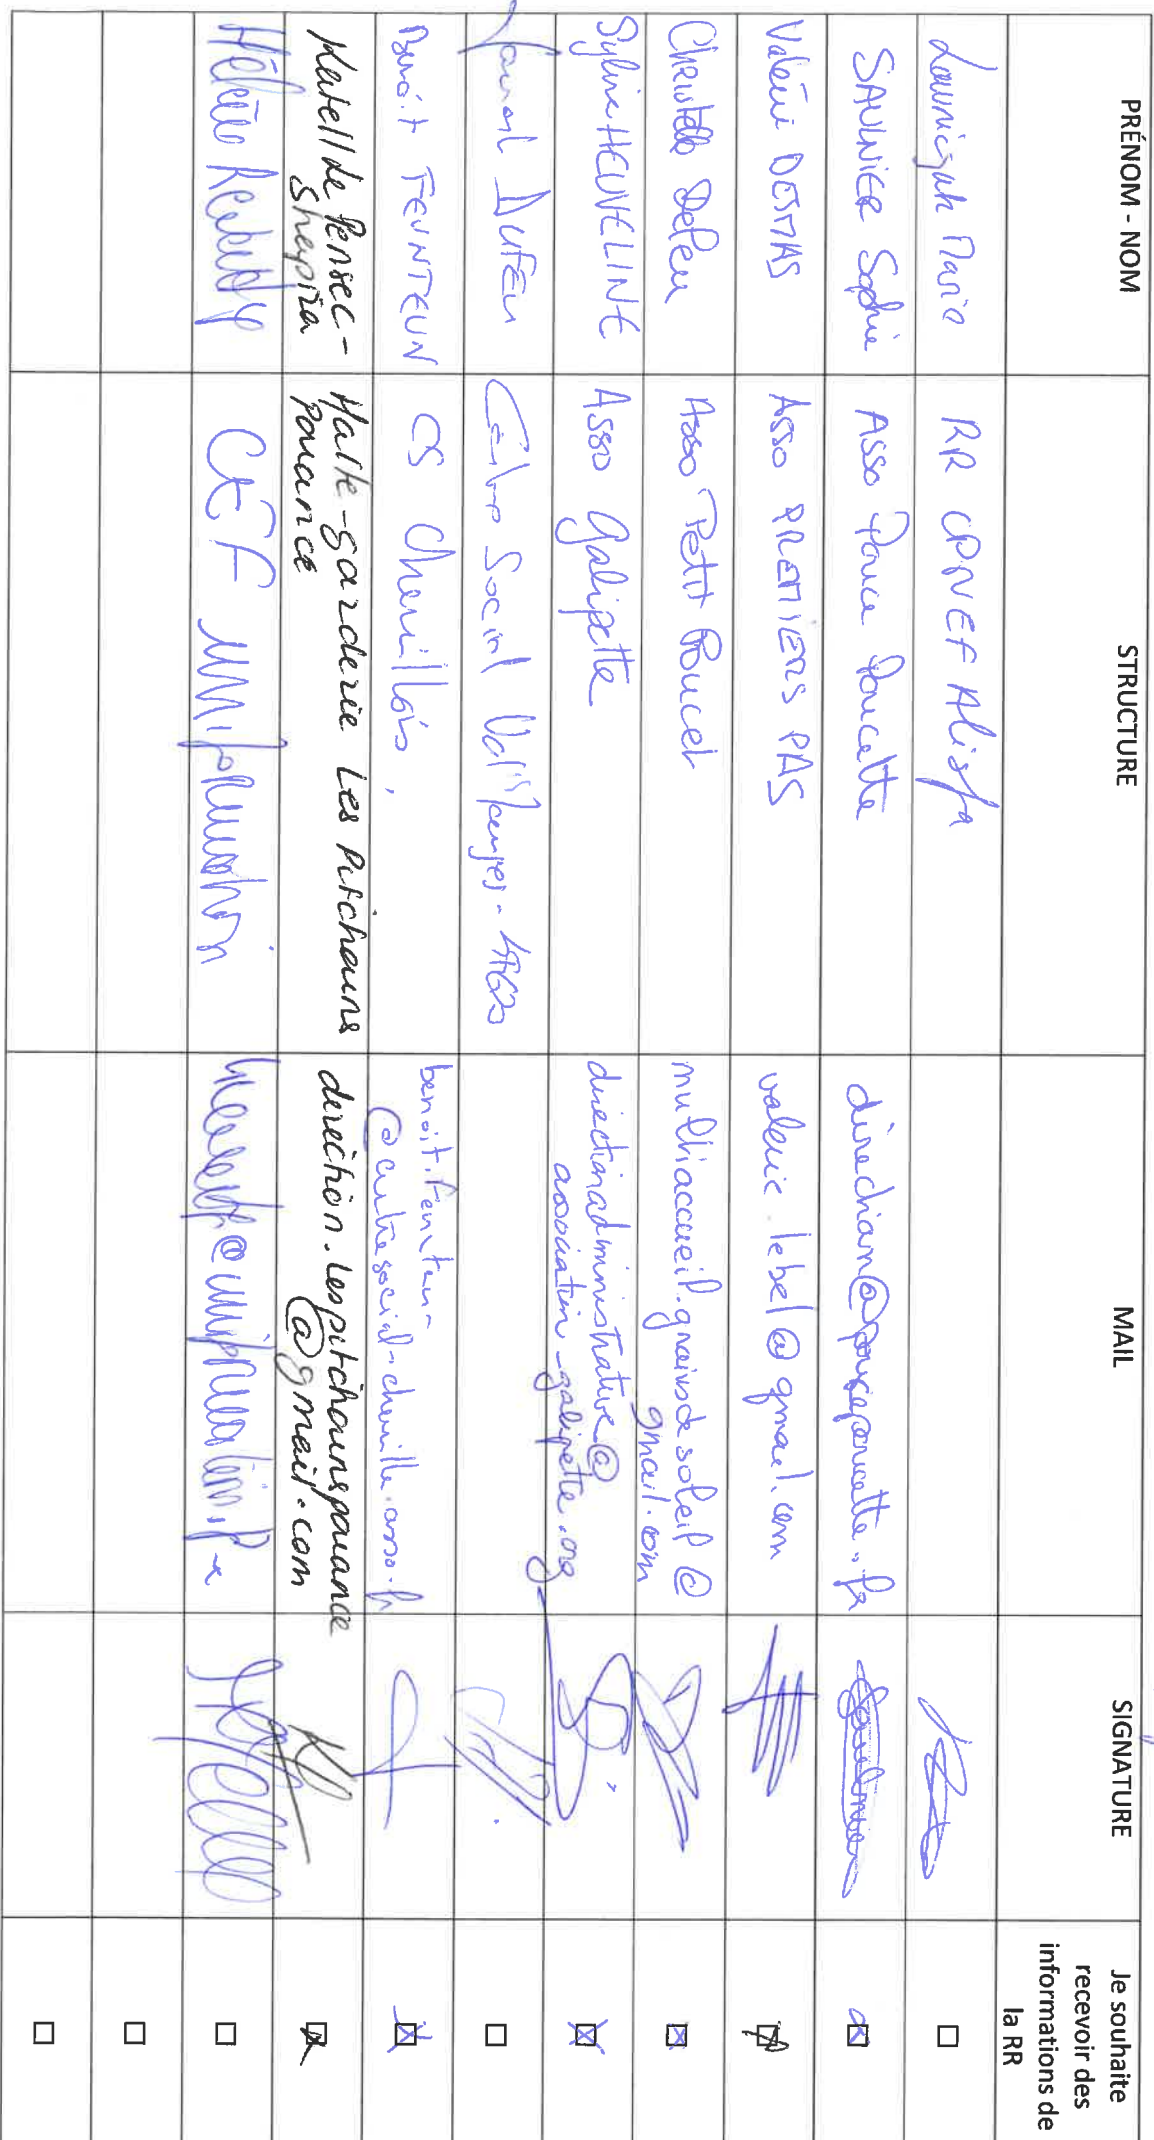 PRÉNOM - NOM
STRUCTURE
MAIL
SIGNATURE
Je souhaite
recevoir des
informations de
la RR
RR CPNEF Alisfa
SAULNIER Sophie
Asso Pouce Poucette
direction@poucepoucette.fr
Valérie DESMAS
Asso PREMIERS PAS
valerie.lebel@gmail.com
Asso Petit Poucet
multiaccueil.grainsdesoleil@
gmail.com
Sylvie HEUVELINE
Asso Galipette
directionadministrative@
association-galipette.org
Centre Social
Benoît FEUNTEUN
CS Chemillois
benoit.feunteun
@centresocial-chemille.asso.fr
Katell de Pensec-
Halte-garderie Les Pitchouns
Pouancé
direction.lespitchounspouance
@gmail.com
Hélène
CEF Uniformation